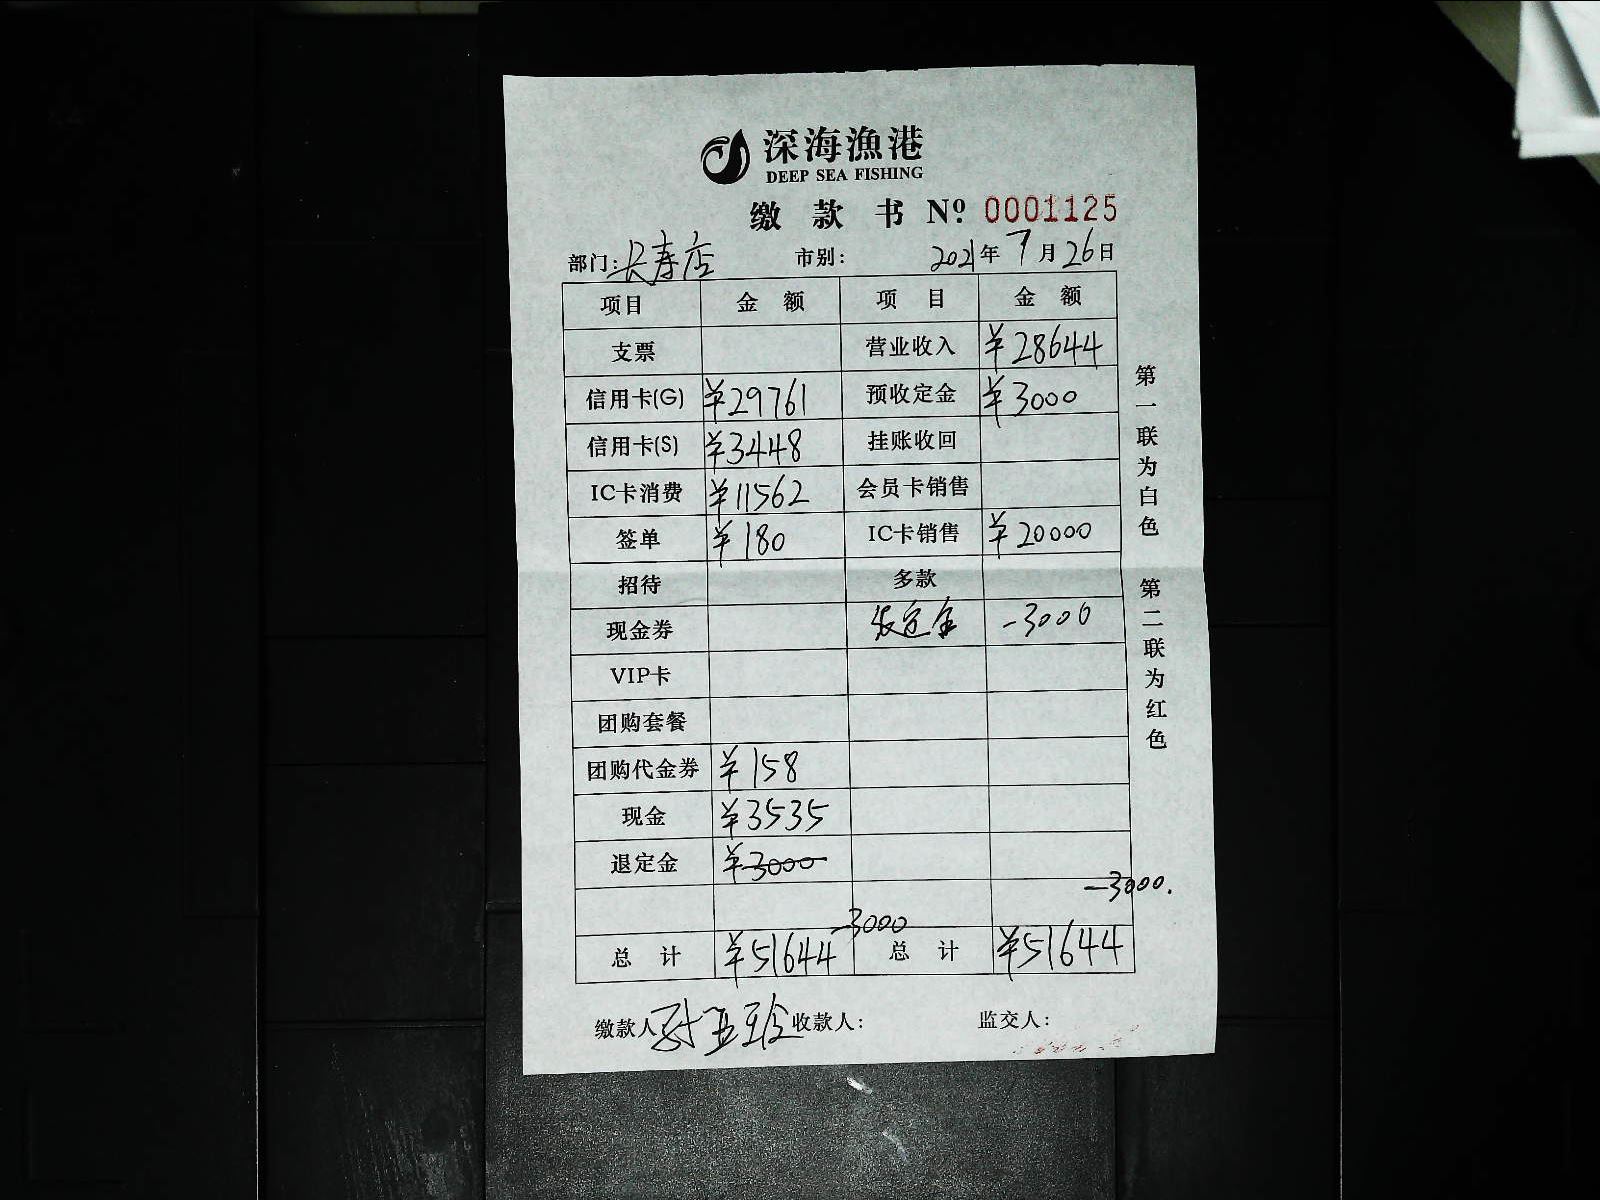 深海漁港
DEEP SEA FISHING
缴款书 Nº 0001125
部门: 长寿店 市别: 2021年7月26日
项目 金额 项目 金额
支票 营业收入 ¥28644
信用卡(G) ¥29761 预收定金 ¥3000
信用卡(S) ¥3448 挂账收回
IC卡消费 ¥11562 会员卡销售
签单 ¥180 IC卡销售 ¥20000
招待 多款
现金券 定金 -3000
VIP卡
团购套餐
团购代金券 ¥158
现金 ¥3535
退定金 ¥3000
-3000.
-3000
总计 ¥51644 总计 ¥51644
缴款人 收款人: 监交人:
第一联为白色 第二联为红色